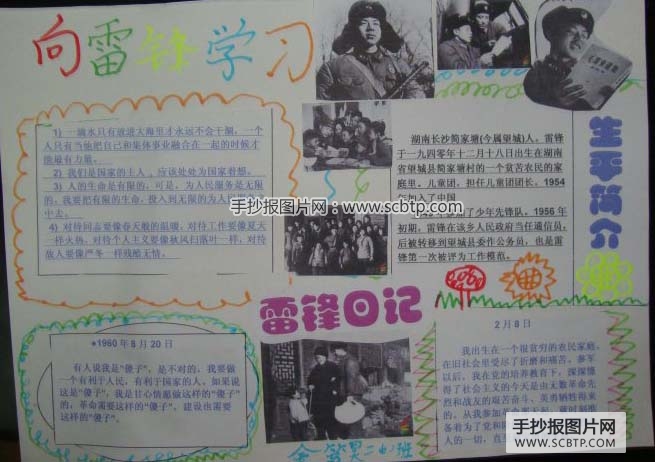 向雷锋学习
1) 一滴水只有放进大海里才永远不会干涸，一个
人只有当他把自己和集体事业融合在一起的时候才
能最有力量。
2) 我们是国家的主人，应该处处为国家着想。
3) 人的生命是有限的，可是，为人民服务是无限
的，我要把有限的生命，投入到无限的为人民服务之
中去。
4) 对待同志要像春天般的温暖，对待工作要像夏天
一样火热，对待个人主义要像秋风扫落叶一样，对待
敌人要像严冬一样残酷无情。
生平简介
湖南长沙简家塘(今属望城)人，雷锋
于一九四零年十二月十八日出生在湖南
省望城县简家塘村的一个贫苦农民的家
庭里。儿童团，担任儿童团团长。1954
年加入了中国
少年先锋队。1956 年
初期，雷锋在该乡人民政府当任通信员，
后被转移到望城县委作公务员，也是雷
锋第一次被评为工作模范。
手抄报图片网：www.scbtp.com
雷锋日记
★1960 年 8 月 20 日
有人说我是“傻子”，是不对的。我要做
一个有利于人民，有利于国家的人，如果说
这是“傻子”，我是甘心情愿做这样的“傻子”
的，革命需要这样的“傻子”，建设也需要
这样的“傻子”。
2 月 8 日
我出生在一个很贫穷的农民家庭，
在旧社会里受尽了折磨和痛苦。参军
以后，我在党的培养教育下，深深懂
得了社会主义的今天是由无数革命先
烈和战友的艰苦奋斗、英勇牺牲得来
的，从我参加
着为了党和
人的一切，直
二(4)班
手抄报图片网
WWW.SCBTP.COM